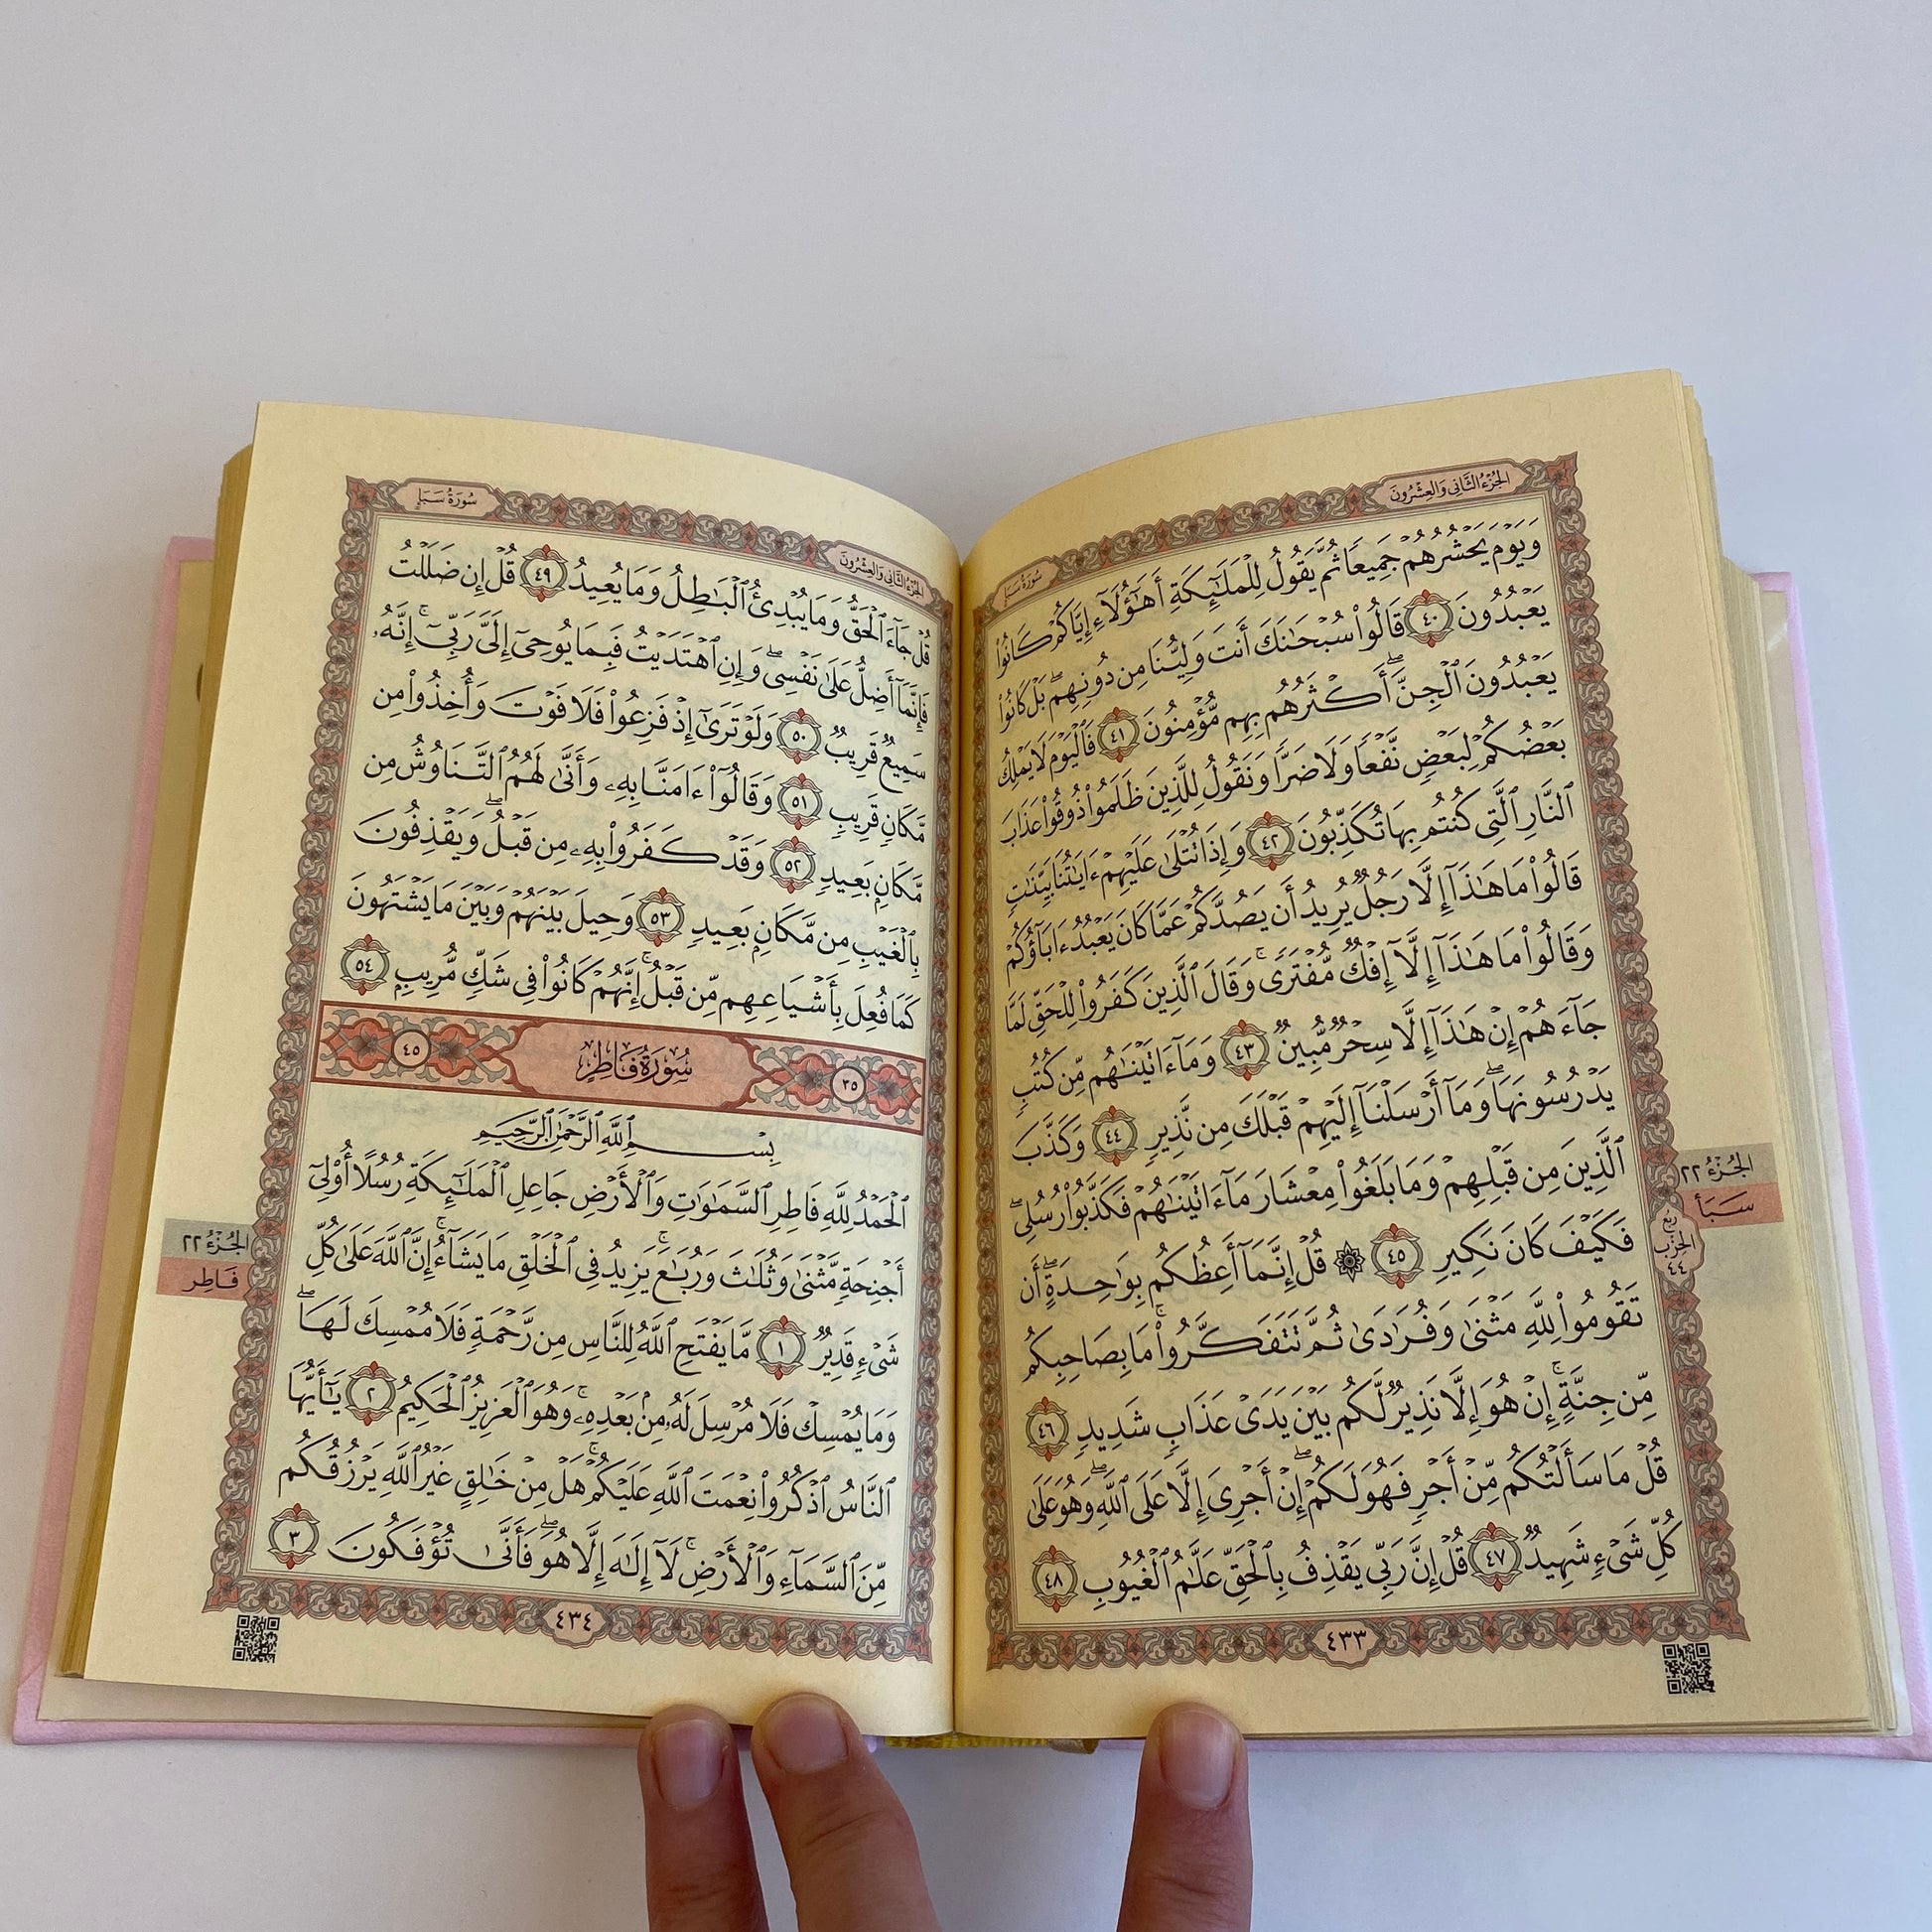 الجُزْءُ الثَّانِي وَالعِشْرُونَ
سُورَةُ سَبَإٍ
وَيَوْمَ يَحْشُرُهُمْ جَمِيعًا ثُمَّ يَقُولُ لِلْمَلَٰٓئِكَةِ أَهَٰٓؤُلَآءِ إِيَّاكُمْ كَانُوا۟
يَعْبُدُونَ ٤٠ قَالُوا۟ سُبْحَٰنَكَ أَنتَ وَلِيُّنَا مِن دُونِهِم ۖ بَلْ كَانُوا۟
يَعْبُدُونَ ٱلْجِنَّ ۖ أَكْثَرُهُم بِهِم مُّؤْمِنُونَ ٤١ فَٱلْيَوْمَ لَا يَمْلِكُ
بَعْضُكُمْ لِبَعْضٍ نَّفْعًا وَلَا ضَرًّا وَنَقُولُ لِلَّذِينَ ظَلَمُوا۟ ذُوقُوا۟ عَذَابَ
ٱلنَّارِ ٱلَّتِى كُنتُم بِهَا تُكَذِّبُونَ ٤٢ وَإِذَا تُتْلَىٰ عَلَيْهِمْ ءَايَٰتُنَا بَيِّنَٰتٍ
قَالُوا۟ مَا هَٰذَآ إِلَّا رَجُلٌ يُرِيدُ أَن يَصُدَّكُمْ عَمَّا كَانَ يَعْبُدُ ءَابَآؤُكُمْ
وَقَالُوا۟ مَا هَٰذَآ إِلَّآ إِفْكٌ مُّفْتَرًى ۚ وَقَالَ ٱلَّذِينَ كَفَرُوا۟ لِلْحَقِّ لَمَّا
جَآءَهُمْ إِنْ هَٰذَآ إِلَّا سِحْرٌ مُّبِينٌ ٤٣ وَمَآ ءَاتَيْنَٰهُم مِّن كُتُبٍ
يَدْرُسُونَهَا ۖ وَمَآ أَرْسَلْنَآ إِلَيْهِمْ قَبْلَكَ مِن نَّذِيرٍ ٤٤ وَكَذَّبَ
ٱلَّذِينَ مِن قَبْلِهِمْ وَمَا بَلَغُوا۟ مِعْشَارَ مَآ ءَاتَيْنَٰهُمْ فَكَذَّبُوا۟ رُسُلِى ۖ
فَكَيْفَ كَانَ نَكِيرِ ٤٥ ۞ قُلْ إِنَّمَآ أَعِظُكُم بِوَٰحِدَةٍ ۖ أَن
تَقُومُوا۟ لِلَّهِ مَثْنَىٰ وَفُرَٰدَىٰ ثُمَّ تَتَفَكَّرُوا۟ ۚ مَا بِصَاحِبِكُم
مِّن جِنَّةٍ ۚ إِنْ هُوَ إِلَّا نَذِيرٌ لَّكُم بَيْنَ يَدَىْ عَذَابٍ شَدِيدٍ ٤٦
قُلْ مَا سَأَلْتُكُم مِّنْ أَجْرٍ فَهُوَ لَكُمْ ۖ إِنْ أَجْرِىَ إِلَّا عَلَى ٱللَّهِ ۖ وَهُوَ عَلَىٰ
كُلِّ شَىْءٍ شَهِيدٌ ٤٧ قُلْ إِنَّ رَبِّى يَقْذِفُ بِٱلْحَقِّ عَلَّٰمُ ٱلْغُيُوبِ ٤٨
٤٣٣
الجُزْءُ ٢٢
سَبَأ
رُبْعُ
الحِزْب
٤٤
الجُزْءُ الثَّانِي وَالعِشْرُونَ
سُورَةُ سَبَإٍ
قُلْ جَآءَ ٱلْحَقُّ وَمَا يُبْدِئُ ٱلْبَٰطِلُ وَمَا يُعِيدُ ٤٩ قُلْ إِن ضَلَلْتُ
فَإِنَّمَآ أَضِلُّ عَلَىٰ نَفْسِى ۖ وَإِنِ ٱهْتَدَيْتُ فَبِمَا يُوحِىٓ إِلَىَّ رَبِّىٓ ۚ إِنَّهُۥ
سَمِيعٌ قَرِيبٌ ٥٠ وَلَوْ تَرَىٰٓ إِذْ فَزِعُوا۟ فَلَا فَوْتَ وَأُخِذُوا۟ مِن
مَّكَانٍ قَرِيبٍ ٥١ وَقَالُوٓا۟ ءَامَنَّا بِهِۦ وَأَنَّىٰ لَهُمُ ٱلتَّنَاوُشُ مِن
مَّكَانٍۭ بَعِيدٍ ٥٢ وَقَدْ كَفَرُوا۟ بِهِۦ مِن قَبْلُ ۖ وَيَقْذِفُونَ
بِٱلْغَيْبِ مِن مَّكَانٍۭ بَعِيدٍ ٥٣ وَحِيلَ بَيْنَهُمْ وَبَيْنَ مَا يَشْتَهُونَ
كَمَا فُعِلَ بِأَشْيَاعِهِم مِّن قَبْلُ ۚ إِنَّهُمْ كَانُوا۟ فِى شَكٍّ مُّرِيبٍۭ ٥٤
٣٥ سُورَةُ فَاطِرٍ ٤٥
بِسْمِ ٱللَّهِ ٱلرَّحْمَٰنِ ٱلرَّحِيمِ
ٱلْحَمْدُ لِلَّهِ فَاطِرِ ٱلسَّمَٰوَٰتِ وَٱلْأَرْضِ جَاعِلِ ٱلْمَلَٰٓئِكَةِ رُسُلًا أُو۟لِىٓ
أَجْنِحَةٍ مَّثْنَىٰ وَثُلَٰثَ وَرُبَٰعَ ۚ يَزِيدُ فِى ٱلْخَلْقِ مَا يَشَآءُ ۚ إِنَّ ٱللَّهَ عَلَىٰ كُلِّ
شَىْءٍ قَدِيرٌ ١ مَّا يَفْتَحِ ٱللَّهُ لِلنَّاسِ مِن رَّحْمَةٍ فَلَا مُمْسِكَ لَهَا ۖ
وَمَا يُمْسِكْ فَلَا مُرْسِلَ لَهُۥ مِنۢ بَعْدِهِۦ ۚ وَهُوَ ٱلْعَزِيزُ ٱلْحَكِيمُ ٢ يَٰٓأَيُّهَا
ٱلنَّاسُ ٱذْكُرُوا۟ نِعْمَتَ ٱللَّهِ عَلَيْكُمْ ۚ هَلْ مِنْ خَٰلِقٍ غَيْرُ ٱللَّهِ يَرْزُقُكُم
مِّنَ ٱلسَّمَآءِ وَٱلْأَرْضِ ۚ لَآ إِلَٰهَ إِلَّا هُوَ ۖ فَأَنَّىٰ تُؤْفَكُونَ ٣
٤٣٤
الجُزْءُ ٢٢
فَاطِر